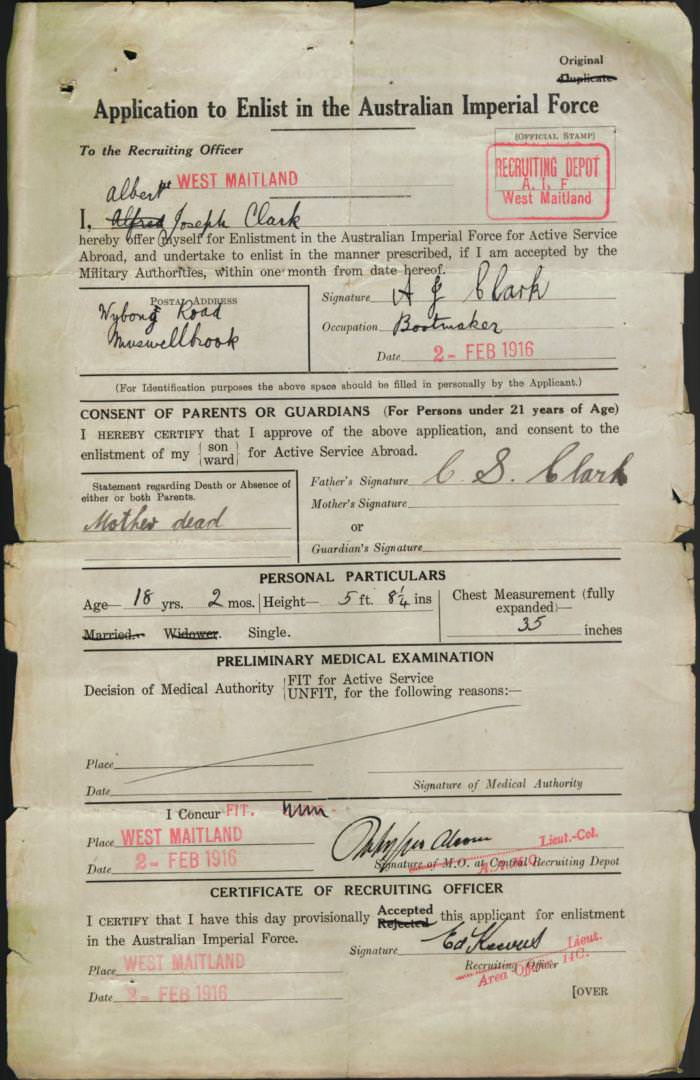 Original
Duplicate
Application to Enlist in the Australian Imperial Force
(OFFICIAL STAMP)
To the Recruiting Officer
WEST MAITLAND
RECRUITING DEPOT
A. I. F
West Maitland
Albert
I, Alfred Joseph Clark
hereby offer myself for Enlistment in the Australian Imperial Force for Active Service
Abroad, and undertake to enlist in the manner prescribed, if I am accepted by the
Military Authorities, within one month from date hereof.
POSTAL ADDRESS
Wybong Road
Muswellbrook
Signature A J Clark
Occupation Bootmaker
Date 2- FEB 1916
(For Identification purposes the above space should be filled in personally by the Applicant.)
CONSENT OF PARENTS OR GUARDIANS (For Persons under 21 years of Age)
I HEREBY CERTIFY that I approve of the above application, and consent to the
enlistment of my {son ward} for Active Service Abroad.
Statement regarding Death or Absence of
either or both Parents.
Mother dead
Father's Signature C. S. Clark
Mother's Signature
or
Guardian's Signature
PERSONAL PARTICULARS
Age— 18 yrs. 2 mos.
Height— 5 ft. 8¼ ins
Chest Measurement (fully
expanded)—
35 inches
Married.- Widower. Single.
PRELIMINARY MEDICAL EXAMINATION
Decision of Medical Authority {FIT for Active Service
UNFIT, for the following reasons:—
Place
Date
Signature of Medical Authority
I Concur FIT.
Place WEST MAITLAND
Date 2- FEB 1916
Lieut.-Col.
Signature of M.O. at Central Recruiting Depot
A.A.M.C.
CERTIFICATE OF RECRUITING OFFICER
I CERTIFY that I have this day provisionally Accepted Rejected this applicant for enlistment
in the Australian Imperial Force.
Signature
Lieut.
Recruiting Officer
Area Officer 14C.
Place WEST MAITLAND
Date 2- FEB 1916
[OVER